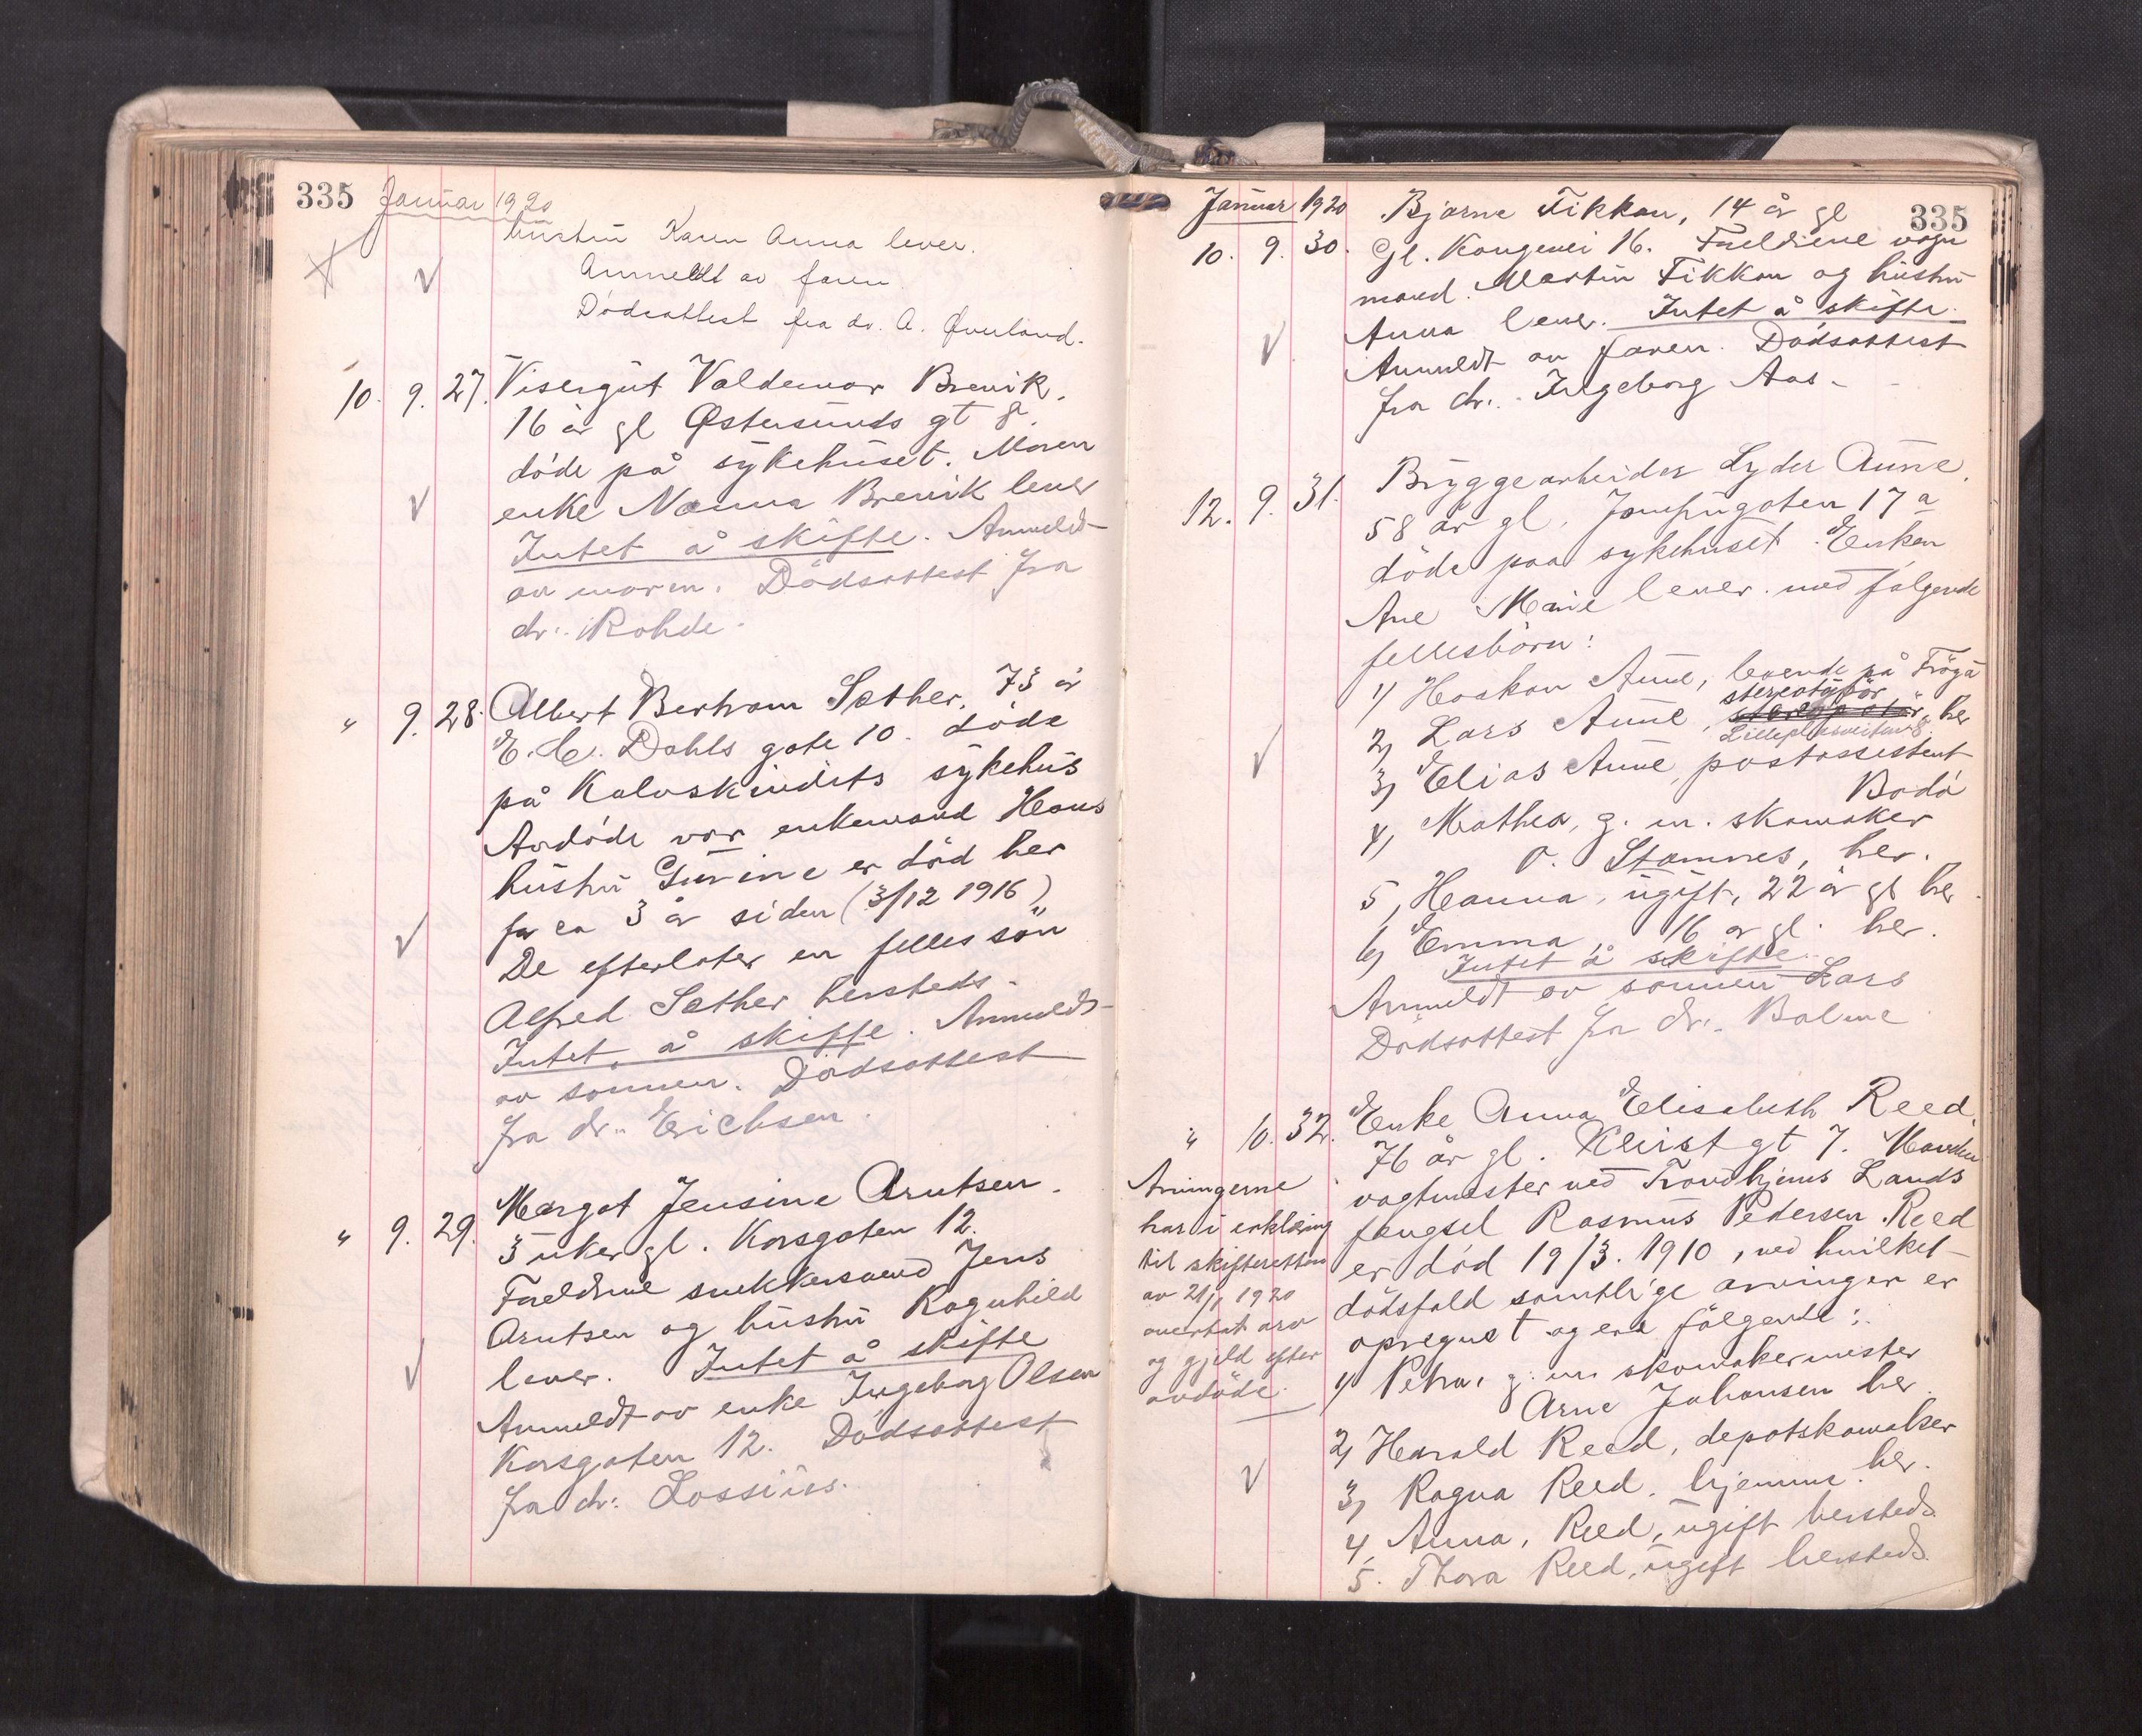 335 Januar 1920
hustru Karen Anna lever.
Anmeldt av faren
Dödsattest fra dr. A. Øverland.
10. 9. 27. Visergut Valdemar Brevik,
16 år gl Østersunds gt 8.
döde på sykehuset. Moren
enke Nanna Brevik lever
Intet å skifte. Anmeldt
av moren. Dödsattest fra
dr. Rohde.
" 9. 28. Albert Bertram Sæther, 73 år
E. C. Dahls gate 10. döde
på Kalvskindets sykehus
Avdöde var enkemand Hans
hustru Gurine er död her
for ca 3 år siden (3/12 1916)
De efterlater en felles sön
Alfred Sæther hersteds.
Intet å skifte. Anmeldt
av sönnen. Dödsattest
fra dr. Erichsen.
" 9. 29. Margot Jensine Arntsen.
3 uker gl. Korsgaten 12.
Foreldrene snekkersvend Jens
Arntsen og hustru Ragnhild
lever. Intet å skifte
Anmeldt av enke Ingeborg Olsen
Korsgaten 12. Dödsattest
fra dr. Lossius.
Januar 1920 335
Bjarne Fikkan, 14 år gl
10. 9. 30. Gl. Kongevei 16. Foreldrene vogn
mand Martin Fikkan og hustru
Anna lever. Intet å skifte.
Anmeldt av faren. Dödsattest
fra dr. Ingeborg Aas.
12. 9. 31. Bryggearbeider Lyder Aune,
58 år gl. Jomfrugaten 17 a
döde paa sykehuset. Enken
Ane Marie lever med følgende
fellesbörn:
1) Haakon Aune, boende på Fröya
stereotypör
2) Lars Aune, " her
3) Elias Aune, postassistent
Bodö
4) Mathea, g. m. skomaker
O. Stamnes, her.
5, Hanna, ugift, 22 år gl her
6) Emma, 16 år gl. her.
Intet å skifte.
Anmeldt av sönnen Lars
Dödsattest fra dr. Balme
" 10. 32. Enke Anna Elisabeth Reed,
76 år gl. Kleist gt 7. Manden
vagtmester ved Trondhjems Lands
fengsel Rasmus Pedersen Reed
er död 19/3. 1910, ved hvilket
dödsfald samtlige arvinger er
opregnet og er følgende:
1) Petra, g. m. skomakermester
Arne Johansen her.
2) Harald Reed, depotskomaker
3) Ragna Reed. hjemme her.
4, Anna, Reed, ugift hersteds
5. Thora Reed, ugift hersteds.
Arvingerne
har i erklæring
til skifteretten
av 21/1 1920
overtat arv
og gjeld efter
avdöde.